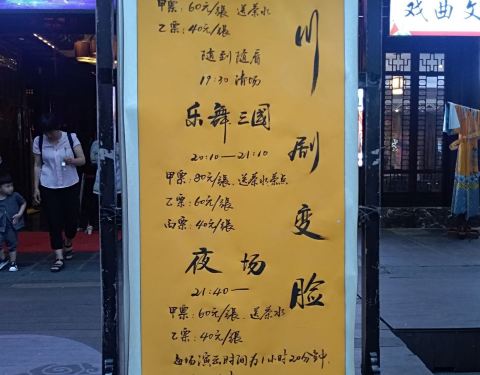 甲票:60元/张 送茶水
乙票:40元/张
随到随看
19:30 清场
乐舞三國
20:10—21:10
甲票:80元/张、送茶水茶点
乙票:60元/张
丙票:40元/张
夜场
21:40—
甲票:60元/张、送茶水
乙票:40元/张
每场演出时间为1小时20分钟.
川剧变脸
戏曲文